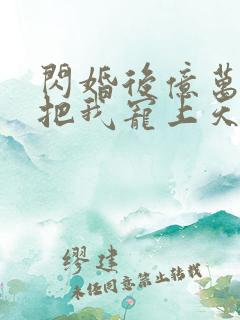 閃婚後億萬
把我寵上天
繆建
未任同意禁止转载